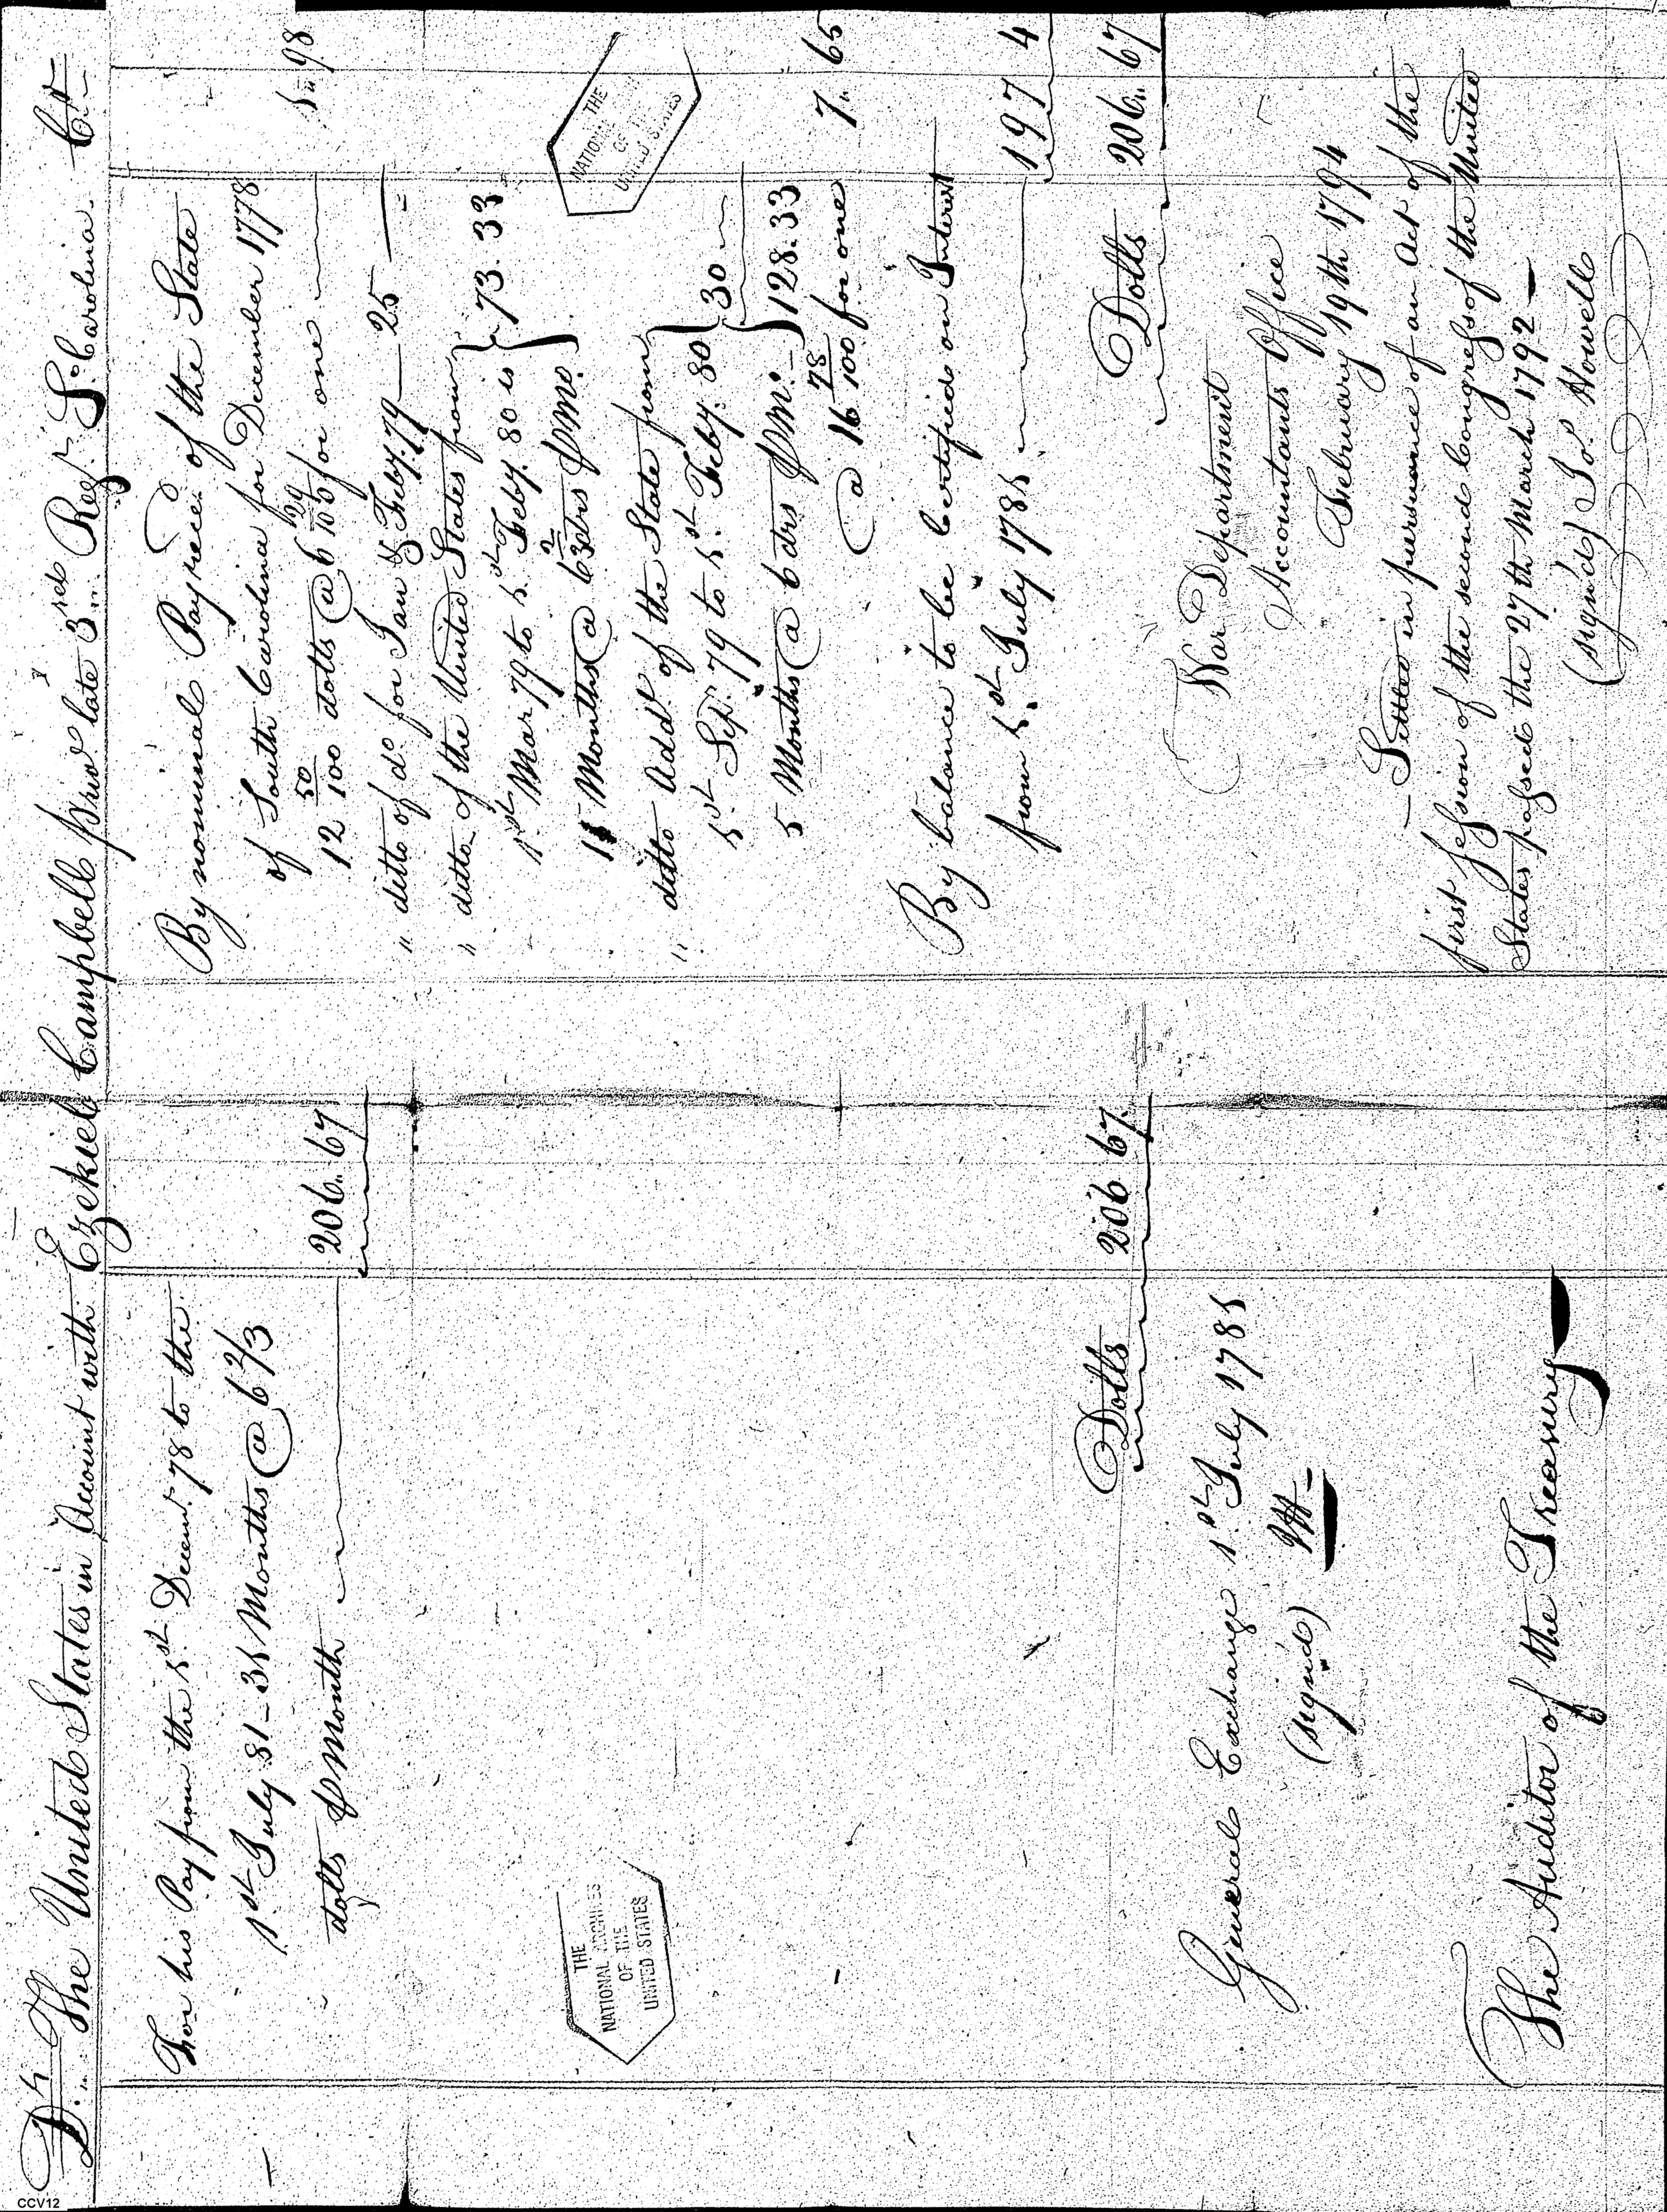 Dr. The United States in Account with Ezekiel Campbell priv.o late 3red Regt. So. Carolina. Cr
For his Pay from the 1st Decemr. 78 to the
1st July 81 – 31 Months @ 6 2/3
dolls ⅌ Month 206.. 67
Dolls 206 67
General Exchange 1st July 1781
(signed)
The Auditor of the Treasury
By nominal Pay reced. of the State
of South Carolina for December 1778
12 50/100 dolls @ 6 29/100 for one 1.. 98
" ditto of do for Jan & Feby. 79 — 25 —
" ditto of the United States from
1st Mar 79 to 1st Feby. 80 is
11 Months @ 6 2/3 drs ⅌ Mo. } 73. 33
" ditto Addl of the State from
1st Sepr. 79 to 1st Feby. 80
5 Months @ 6 drs ⅌ Mo. } 30
128. 33
@ 16 78/100 for one 7.. 65
By balance to be Certified on Interest
from 1st July 1781 197 4
Dolls 206.. 67
War Department
Accountants Office
February 19th 1794
Settled in pursuance of an Act of the
first session of the second Congress of the United
States passed the 27th March 1792 —
(signed) Jo. Howell
THE
NATIONAL ARCHIVES
OF THE
UNITED STATES
THE
NATIONAL ARCHIVES
OF THE
UNITED STATES
CCV12